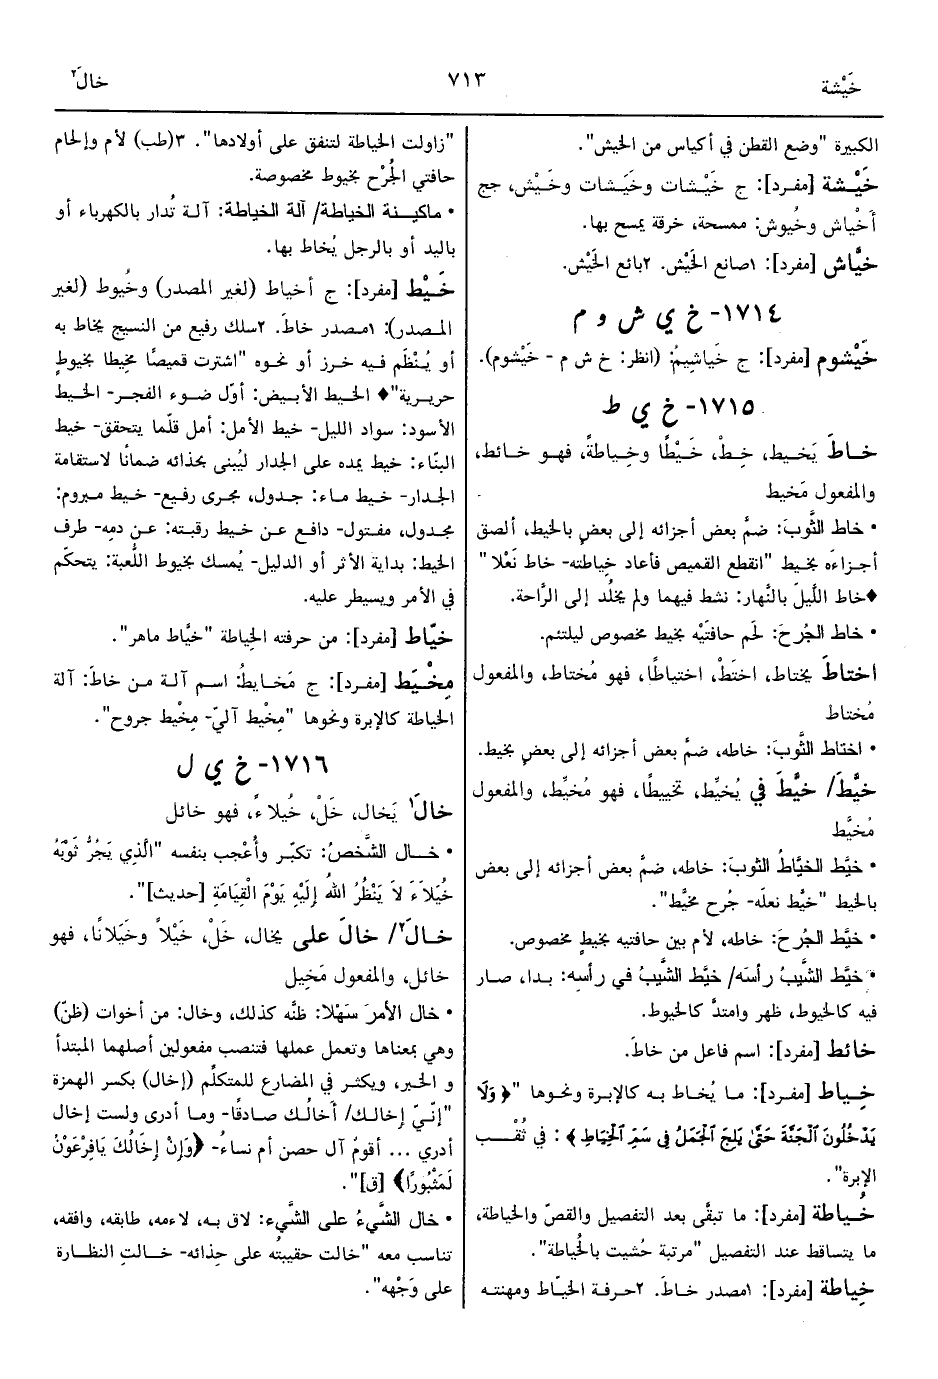 خَيْشة
٧١٣
خالَ٢
الكبيرة "وضع القطن في أكياس من الخيش".
خَيْشة [مفرد]: ج خَيْشات وخَيَشات وخَيْش، جج
أخْياش وخُيوش: ممسحة، خرقة يمسح بها.
خيَّاش [مفرد]: ١صانع الخَيْش. ٢بائع الخَيْش.
١٧١٤- خ ي ش و م
خَيْشوم [مفرد]: ج خَياشيمُ: (انظر: خ ش م - خَيْشوم).
١٧١٥- خ ي ط
خـاطَ يَخيـط، خِـطْ، خَيْطًا وخِياطةً، فهـو خـائط،
والمفعول مَخيط
• خاط الثَّوبَ: ضمَّ بعض أجزائه إلى بعضٍ بالخيط، ألصق
أجـزاءَه بخـيط "انقطع القميص فأعاد خِياطته- خاط نَعْلا"
♦خاط اللَّيلَ بالنَّهار: نشط فيهما ولم يخلُد إلى الرَّاحة.
• خاط الجُرحَ: لحَم حافتَيْه بخيط مخصوص ليلتئم.
اختاطَ يختاط، اختَطْ، اختياطًا، فهو مُختاط، والمفعول
مُختاط
• اختاط الثَّوبَ: خاطه، ضمَّ بعض أجزائه إلى بعضٍ بخيط.
خيَّطَ/ خيَّطَ في يُخيِّط، تخييطًا، فهو مُخيِّط، والمفعول
مُخيَّط
• خيَّط الخيَّاطُ الثوبَ: خاطه، ضمَّ بعض أجزائه إلى بعض
بالخيط "خيَّط نعلَه- جُرح مخيَّط".
• خيَّط الجُرحَ: خاطه، لأم بين حافتيه بخيطٍ مخصوص.
• خيَّط الشَّيبُ رأسَه/ خيَّط الشَّيبُ في رأسِه: بـدا، صـار
فيه كالخيوط، ظهر وامتدَّ كالخيوط.
خائط [مفرد]: اسم فاعل من خاطَ.
خِـيـاط [مفرد]: مـا يُخـاط بـه كالإبـرة ونحـوهـا "﴿وَلَا
يَدْخُلُونَ ٱلْجَنَّةَ حَتَّىٰ يَلِجَ ٱلْجَمَلُ فِي سَمِّ ٱلْخِيَاطِ﴾: في ثُقْـب
الإبرة".
خُـياطة [مفرد]: ما تبقَّى بعد التفصيل والقصّ والخياطة،
ما يتساقط عند التفصيل "مرتبة حُشيت بالخُياطة".
خِياطة [مفرد]: ١مصدر خـاطَ. ٢حـرفـة الخيّاط ومهنتـه
"زاولت الخياطة لتنفق على أولادها". ٣(طب) لأم وإلحام
حافتي الجُرْح بخيوط مخصوصة.
• ماكيـنـة الخياطة/ آلة الخياطة: آلـة تُدار بالكهرباء أو
باليد أو بالرجل يُخاط بها.
خَـيْط [مفرد]: ج أخياط (لغير المصدر) وخُيوط (لغير
المـصدر): ١مـصدر خاطَ. ٢سلك رفيع من النسيج يخاط به
أو يُنْظم فـيه خـرز أو نحـوه "اشترت قميصًا مخيطا بخيوطٍ
حريـرية"♦ الخـيط الأبـيض: أوّل ضـوء الفجـر- الخـيط
الأسود: سواد الليل- خيط الأمل: أمل قلّما يتحقق- خيط
البنّاء: خيط يمده على الجدار ليُبنى بحذائه ضمانًا لاستقامة
الجدار- خـيط مـاء: جـدول، مجـرى رفيع- خـيط مـبروم:
مجـدول، مفـتول- دافع عـن خـيط رقبـته: عـن دمِه- طرف
الخيط: بداية الأثر أو الدليل- يُمسك بخيوط اللُّعبة: يتحكّم
في الأمر ويسيطر عليه.
خيّاط [مفرد]: من حرفته الخِياطة "خيَّاط ماهر".
مِخْيَـط [مفرد]: ج مَخـايـطُ: اسـم آلـة مـن خاطَ: آلة
الخياطة كالإبرة ونحوها "مِخْيط آليّ- مِخْيط جروح".
١٧١٦- خ ي ل
خالَ١ يَخال، خَلْ، خُيلاءً، فهو خائل
• خـال الشَّخصُ: تكبّـر وأُعْجب بنفسه "الَّذِي يَجُرُّ ثَوْبَهُ
خُيَلَاءَ لَا يَنْظُرُ اللهُ إِلَيْهِ يَوْمَ الْقِيَامَةِ [حديث]".
خـالَ٢/ خالَ على يخال، خَلْ، خَيْلاً وخَيَلانًا، فهو
خائل، والمفعول مَخِيل
• خال الأمرَ سَهْلا: ظنَّه كذلك، وخال: من أخوات (ظنّ)
وهي بمعناها وتعمل عملها فتنصب مفعولين أصلهما المبتدأ
و الخبر، ويكثـر في المضارع للمتكلِّم (إخال) بكسر الهمزة
"إنّـيَ إخالك/ أخالُـك صـادقًا- ومـا أدرى ولست إخال
أدري ... أقومُ آل حصن أم نساءُ- ﴿وَإِنْ إِخَالُكَ يَافِرْعَوْنُ
لَمَثْبُورًا﴾ [ق]".
• خال الشَّيءُ على الشَّيء: لاق بـه، لاءمه، طابقه، وافقه،
تناسب معه "خالت حقيبتُه على حِذائه- خـالـتِ النظـارة
على وَجْهه".